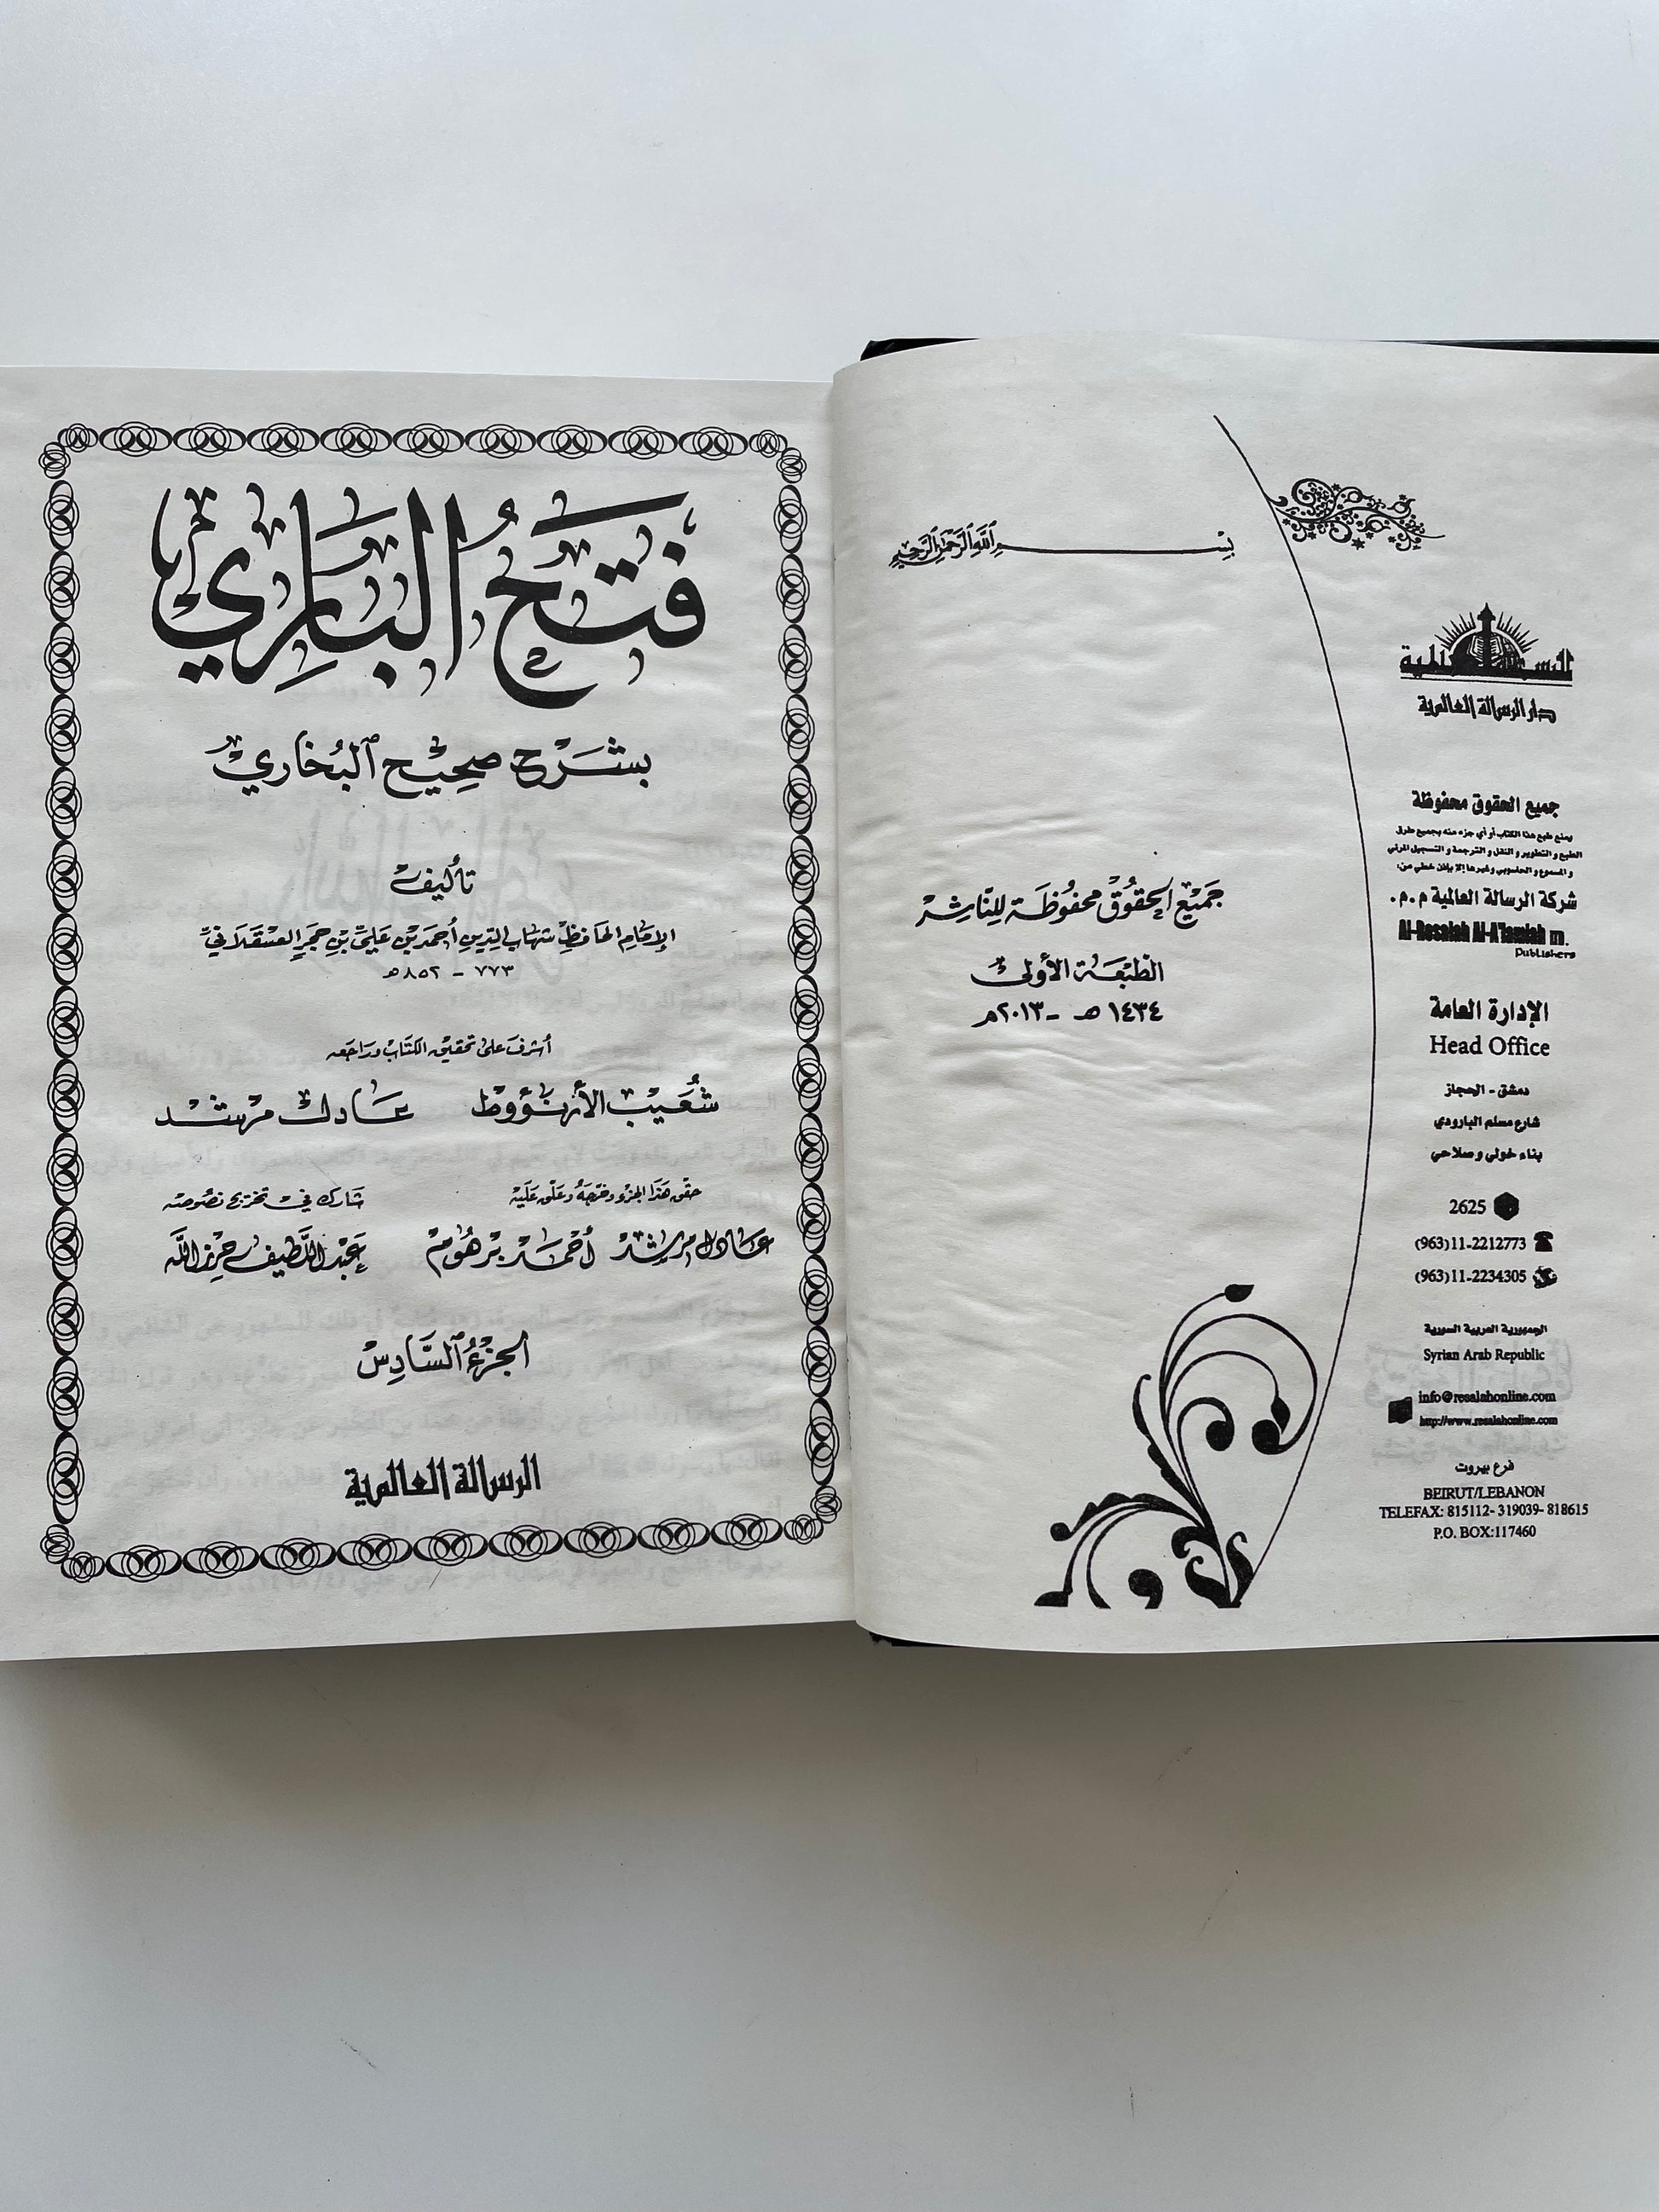 بسم الله الرحمن الرحيم
جميع الحقوق محفوظة للناشر
الطبعة الأولى
١٤٣٤ هـ - ٢٠١٣م
دار الرسالة العالمية
جميع الحقوق محفوظة
يمنع طبع هذا الكتاب أو أي جزء منه بجميع طرق
الطبع و التصوير و النقل و الترجمة و التسجيل المرئي
و المسموع و الحاسوبي وغيرها إلا بإذن خطي من:
شركة الرسالة العالمية م.م.
Al-Resalah Al-A'lamiah m.
Publishers
الإدارة العامة
Head Office
دمشق - الحجاز
شارع مسلم البارودي
بناء خولي و صلاحي
2625
(963)11-2212773
(963)11-2234305
الجمهورية العربية السورية
Syrian Arab Republic
info@resalahonline.com
http://www.resalahonline.com
فرع بيروت
BEIRUT/LEBANON
TELEFAX: 815112- 319039- 818615
P.O. BOX:117460
فَتْحُ البَارِي
بشَرْح صَحِيْح ٱلبُخَاري
تأليف
الإمَامِ الحَافِظِ شهَابِ الدِّينِ أَحْمَد بْن عَلِيِّ بْنِ حَجَرٍ العَسْقَلَانيِّ
٧٧٣ - ٨٥٢هـ
أشرفَ عَلى تحقيق الكتَاب ورَاجَعه
شُعَيْب الأرنَؤوط عَادل مُرشد
حقّق هَذَا الجزء وخرّجَهُ وعَلّق عَلَيْه
شَارك في تخريج نصُوصه
عَادل مرشد أحْمَد بَرهُوم عَبْد اللّطيف حرز الله
الجزءُ ٱلسَّادِسْ
الرسالة العالمية